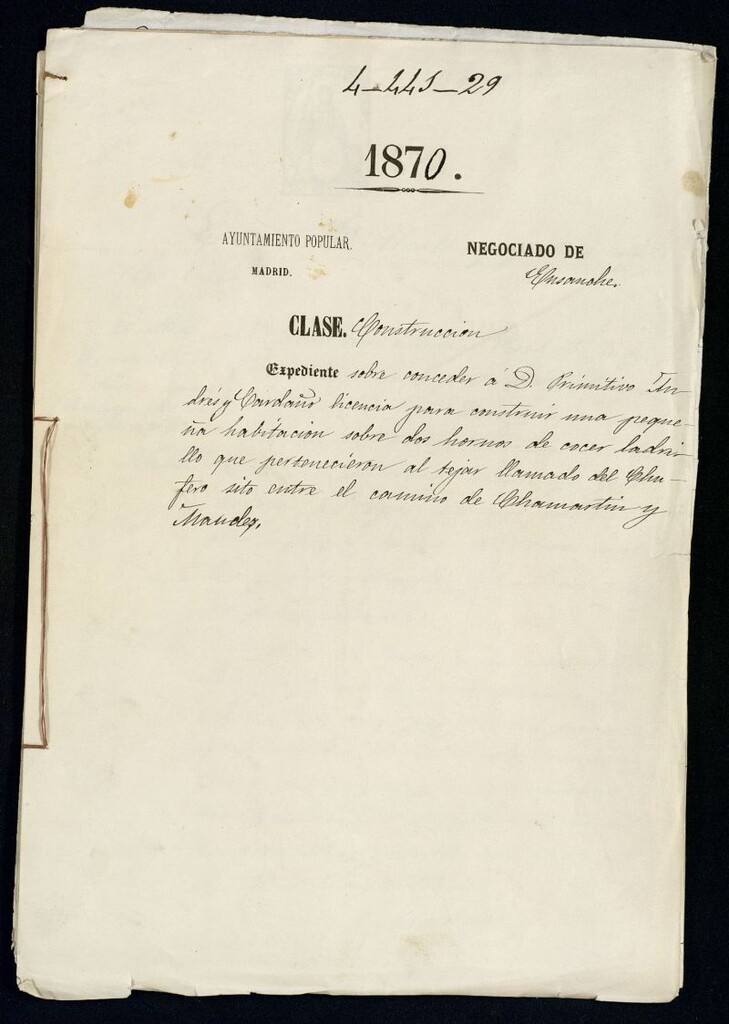 4-441-29
1870.
AYUNTAMIENTO POPULAR.
MADRID.
NEGOCIADO DE
Ensanche.
CLASE. Construccion
Expediente sobre conceder á D. Primitivo An-
drés y Cardaño licencia para construir una peque-
ña habitacion sobre dos hornos de cocer ladri-
llo que pertenecieron al tejar llamado del Chu-
fero sito entre el camino de Chamartin y
Maudez.